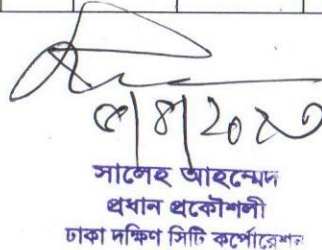 সালেহ আহম্মেদ
প্রধান প্রকৌশলী
ঢাকা দক্ষিণ সিটি কর্পোরেশন